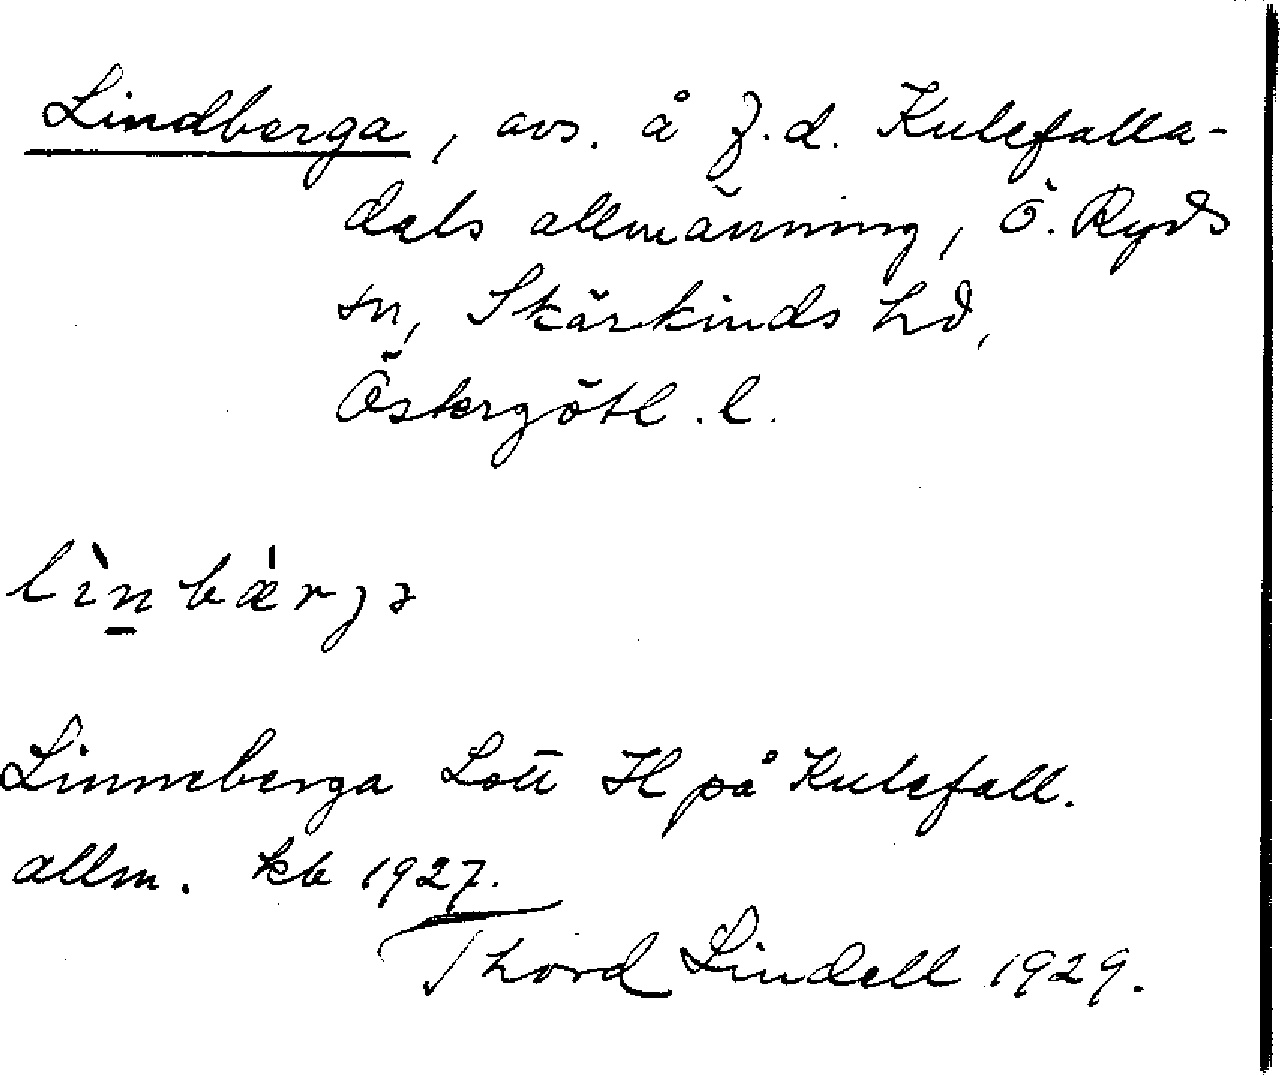 Lindberga, avs. å f.d. Kulefalla-
dals allmänning, Ö. Ryds
sn, Skärkinds hd,
Östergötl. l.
lìnbǽrja
Linneberga Lott H på Kulefall.
allm. kb 1927.
Thord Lindell 1929.